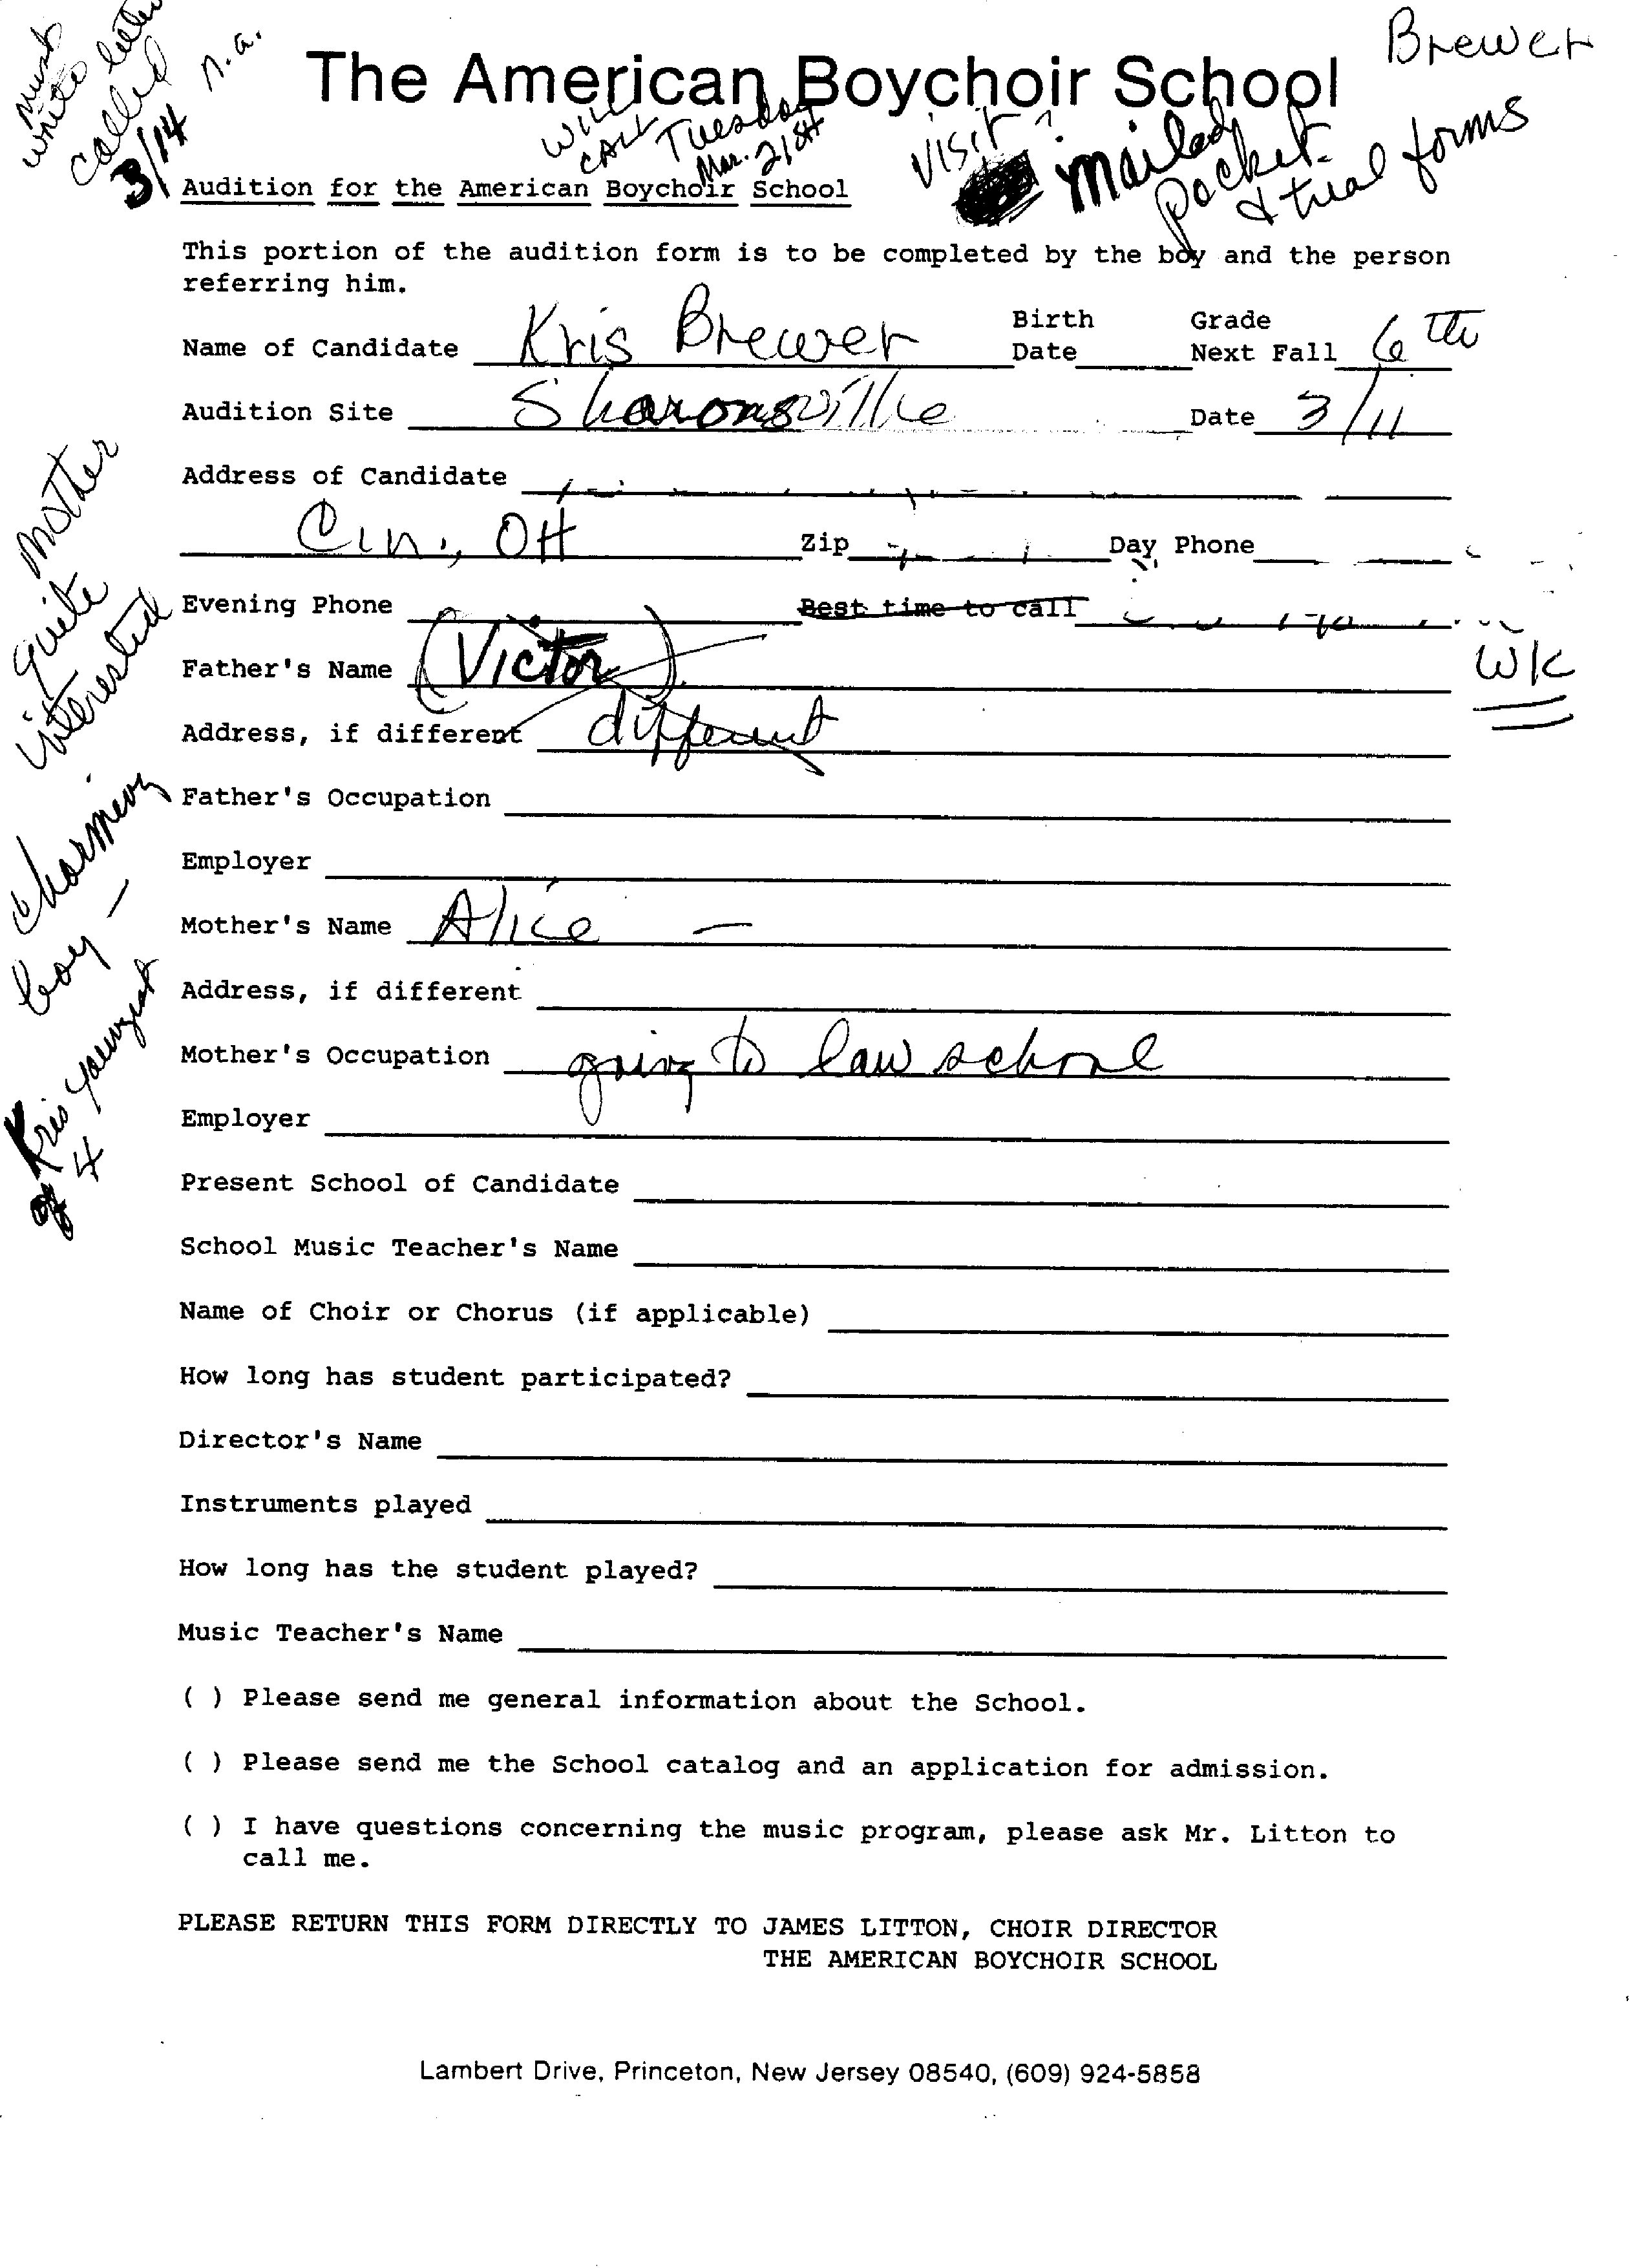 must
write letter
called
3/14
n.a.
Brewer
The American Boychoir School
WILL
CALL
Tuesday
Mar. 21st
VISIT
mailed
packet
& trial forms
Audition for the American Boychoir School
This portion of the audition form is to be completed by the boy and the person
referring him.
Name of Candidate Kris Brewer Birth Date Grade Next Fall 6th
Audition Site Sharonsville Date 3/11
Address of Candidate
Cin., OH Zip Day Phone
Evening Phone Best time to call
WK
Father's Name (Victor)
Address, if different different
Father's Occupation
Employer
Mother's Name Alice —
Address, if different
Mother's Occupation going to law school
Employer
Present School of Candidate
School Music Teacher's Name
Name of Choir or Chorus (if applicable)
How long has student participated?
Director's Name
Instruments played
How long has the student played?
Music Teacher's Name
( ) Please send me general information about the School.
( ) Please send me the School catalog and an application for admission.
( ) I have questions concerning the music program, please ask Mr. Litton to
call me.
PLEASE RETURN THIS FORM DIRECTLY TO JAMES LITTON, CHOIR DIRECTOR
THE AMERICAN BOYCHOIR SCHOOL
Lambert Drive, Princeton, New Jersey 08540, (609) 924-5858
Mother
quite
interested
charming
boy —
Kris youngest
of 4